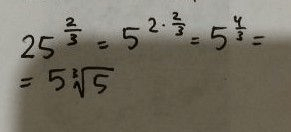 25^{\frac{2}{3}} = 5^{2 \cdot \frac{2}{3}} = 5^{\frac{4}{3}} =
= 5\sqrt[3]{5}